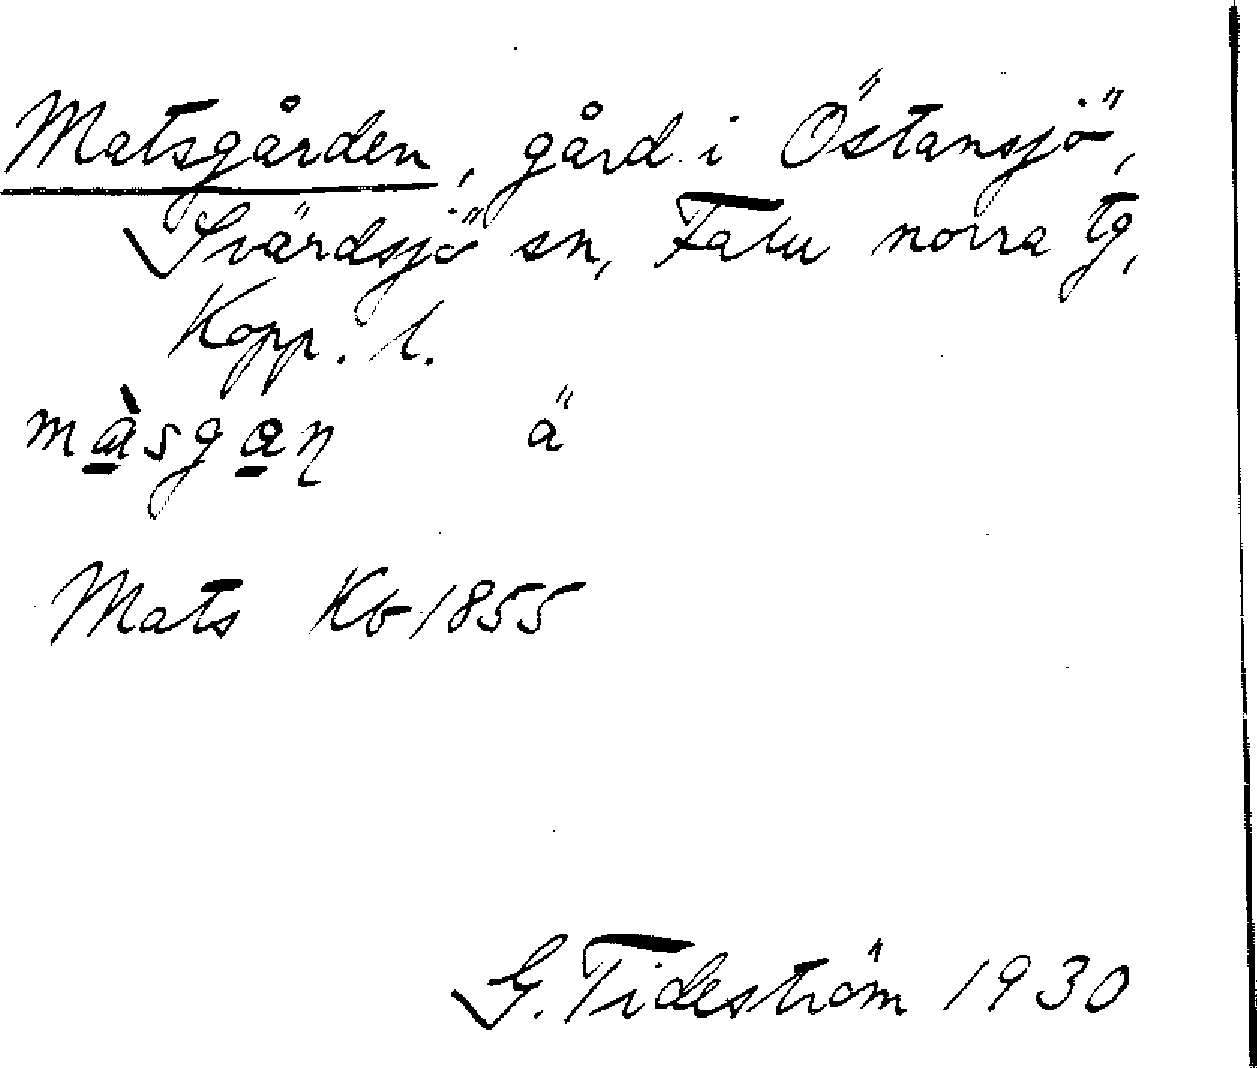 Matsgården, gård i Östansjö,
Svärdsjö sn, Falu norra tg,
Kopp. l.
mà̱sga̱ŋ ä
Mats Kb 1855
G. Tideström 1930